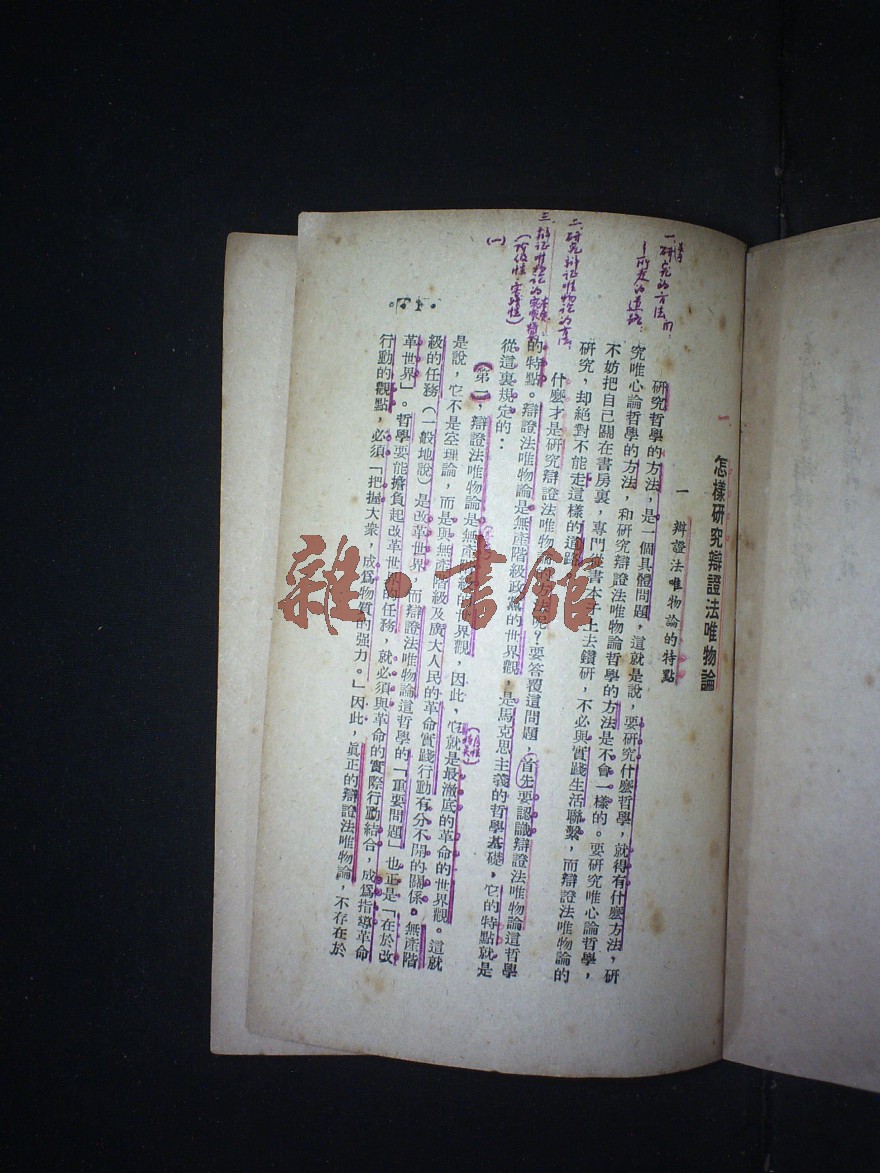 怎樣研究辯證法唯物論
一 辯證法唯物論的特點
研究哲學的方法,是一個具體問題,這就是說,要研究什麼哲學,就得有什麼方法,研
究唯心論哲學的方法,和研究辯證法唯物論哲學的方法是不會一樣的。要研究唯心論哲學,
不妨把自己關在書房裏,專門從書本子上去鑽研,不必與實踐生活聯繫,而辯證法唯物論的
研究,却絕對不能走這樣的道路。
什麼才是研究辯證法唯物論的方法呢?要答覆這問題,首先要認識辯證法唯物論這哲學
的特點。辯證法唯物論是無產階級政黨的世界觀,是馬克思主義的哲學基礎,它的特點就是
從這裏規定的:
(第一),辯證法唯物論是無產階級的世界觀,因此,它就是最澈底的革命的世界觀。這就
是說,它不是空理論,而是與無產階級及廣大人民的革命實踐行動有分不開的關係。無產階
級的任務(一般地說)是改革世界,而辯證法唯物論這哲學的「重要問題」也正是「在於改
革世界」。哲學要能擔負起改革世界的任務,就必須與革命的實際行動結合,成爲指導革命
行動的觀點,必須「把握大衆,成爲物質的强力。」因此,眞正的辯證法唯物論,不存在於
1
一 研究的方法即
所走的道路
二 研究辯証唯物論的方法
三 辯証唯物論的
(階級性、實踐性)
(一)
雜·書館